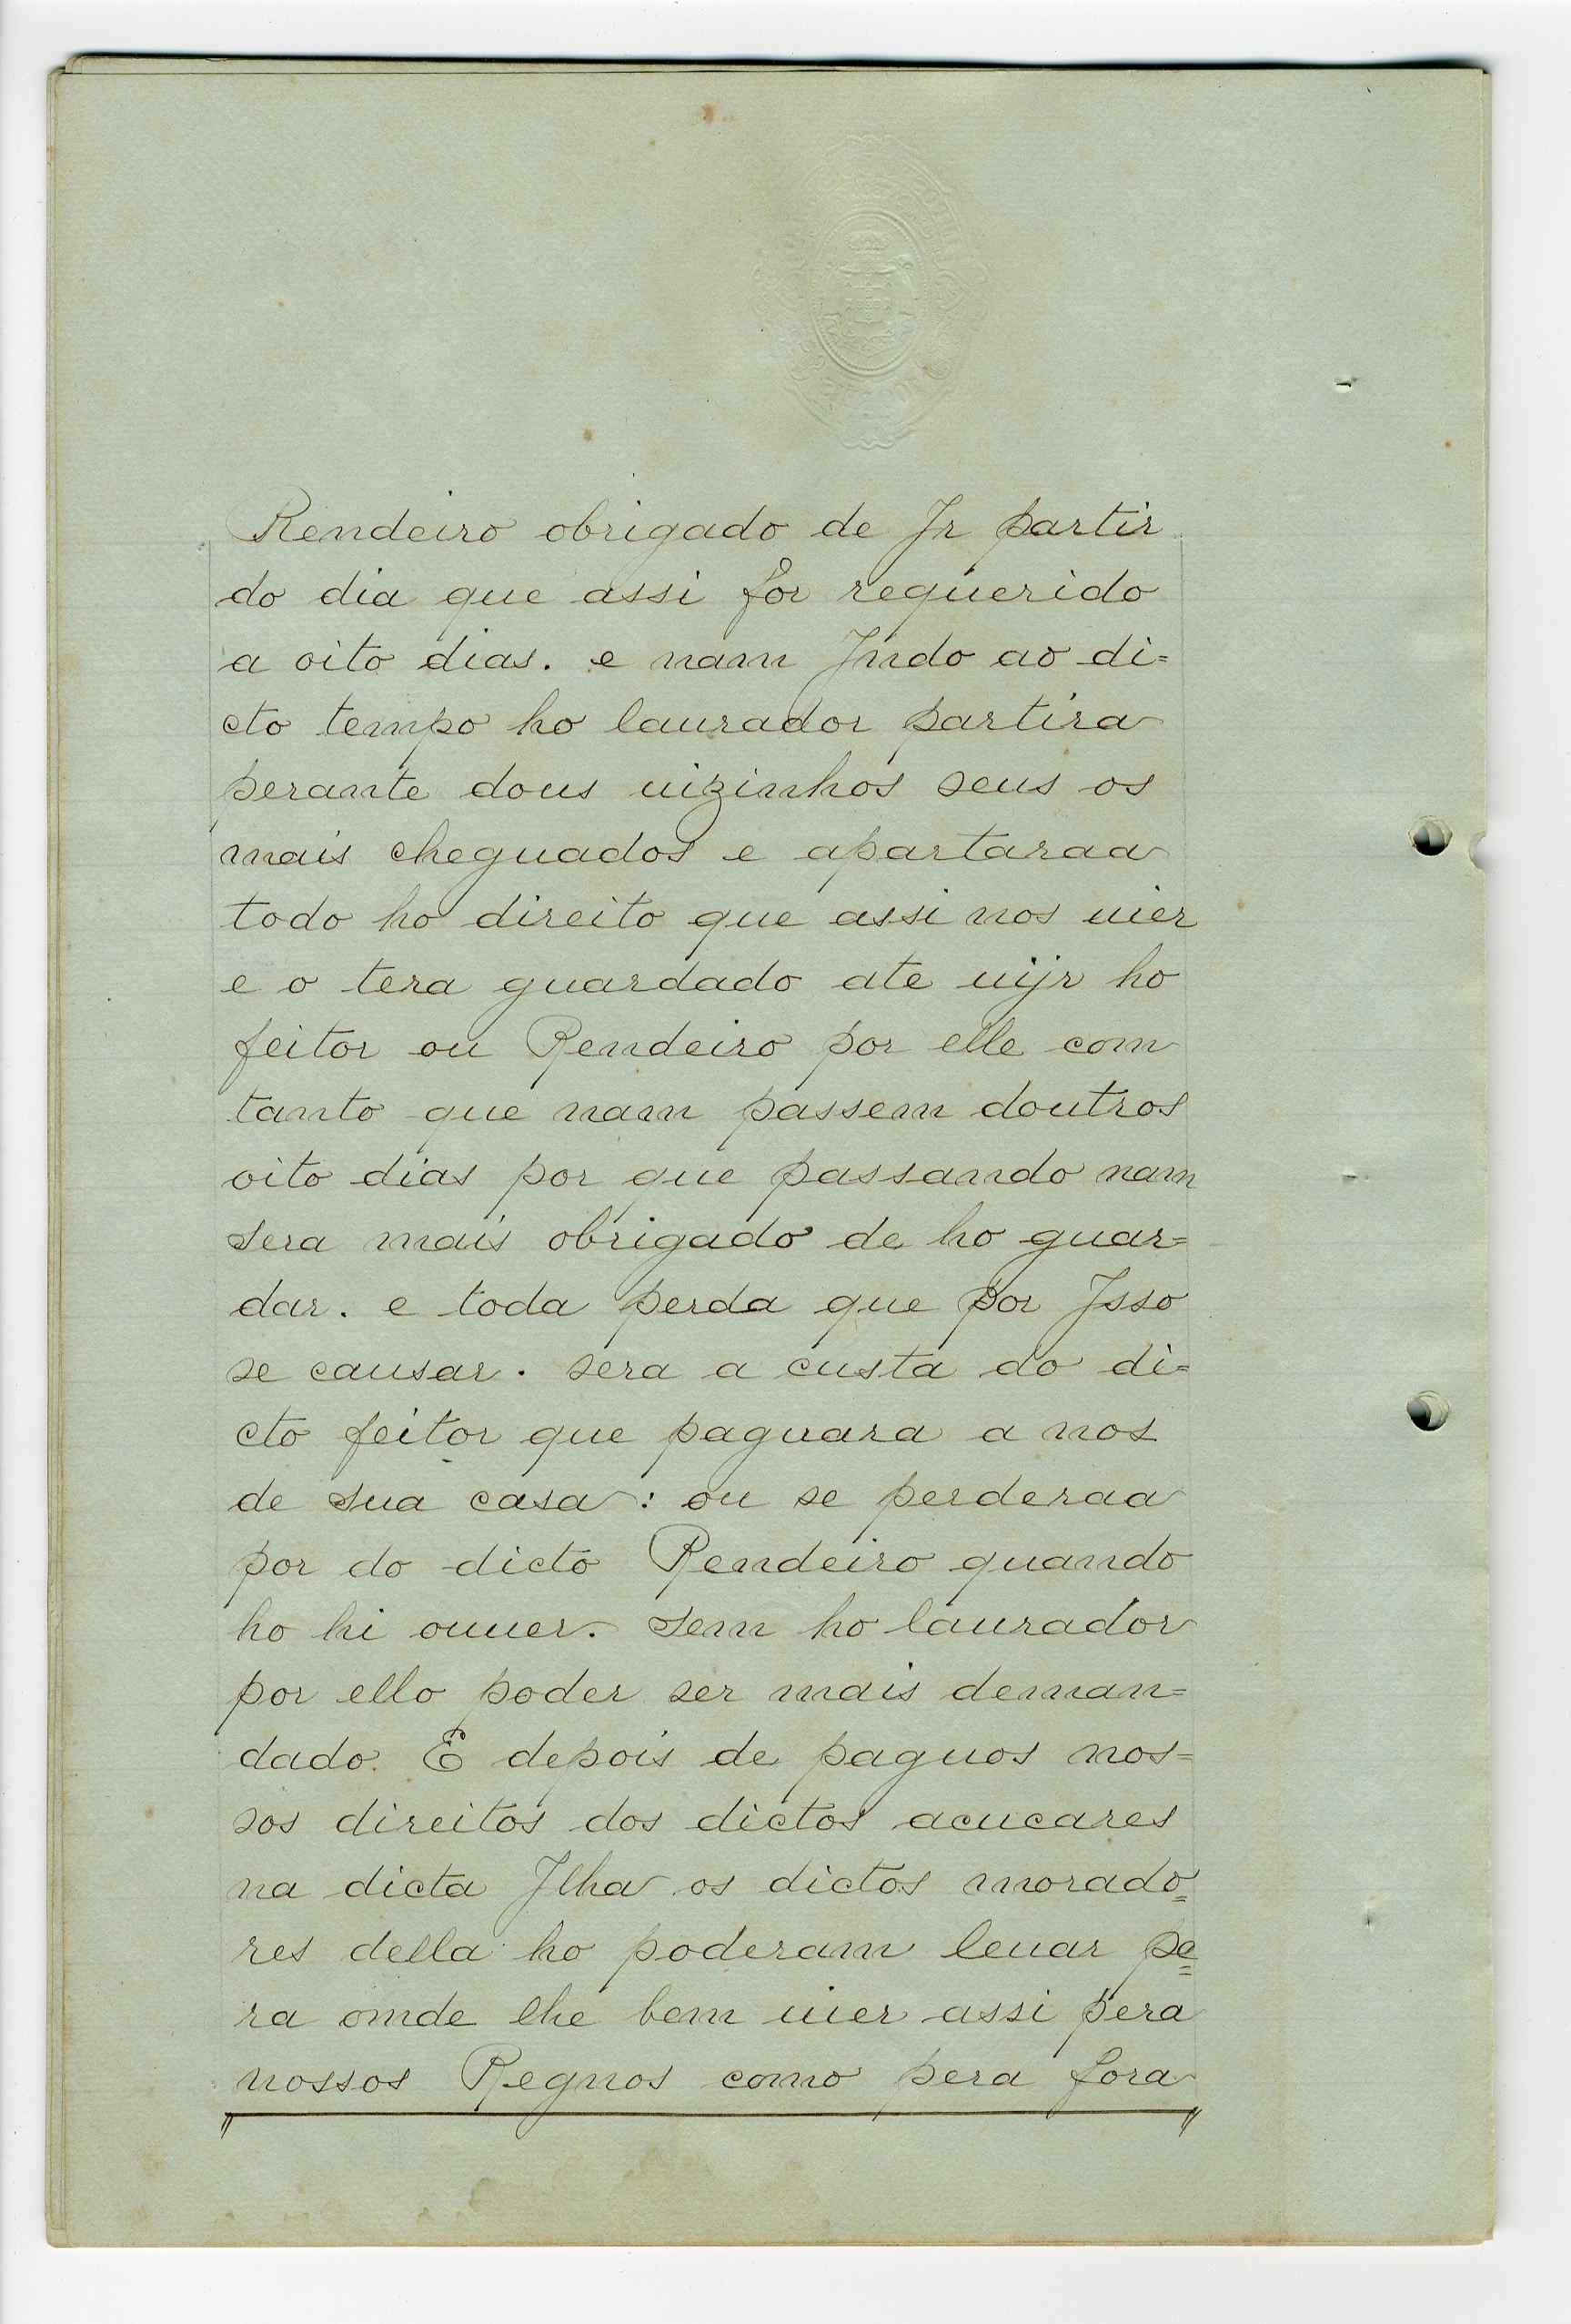 Rendeiro obrigado de Jr partir
do dia que assi for requerido
a oito dias. e nam Jndo ao di=
cto tempo ho laurador partira
perante dous uizinhos seus os
mais cheguados e apartaraa
todo ho direito que assi nos uier
e o tera guardado ate uijr ho
feitor ou Rendeiro por elle com
tanto que nam passem doutros
oito dias por que passando nam
sera mais obrigado de ho guar=
dar. e toda perda que por Jsso
se causar. sera a custa do di=
cto feitor que paguara a nos
de sua casa: ou se perderaa
por do dicto Rendeiro quando
ho hi ouuer. sem ho laurador
por ello poder ser mais deman=
dado. E depois de paguos nos=
sos direitos dos dictos acucares
na dicta Jlha os dictos morado=
res della ho poderam leuar pe=
ra omde lhe bem uier assi pera
nossos Regnos como pera fora